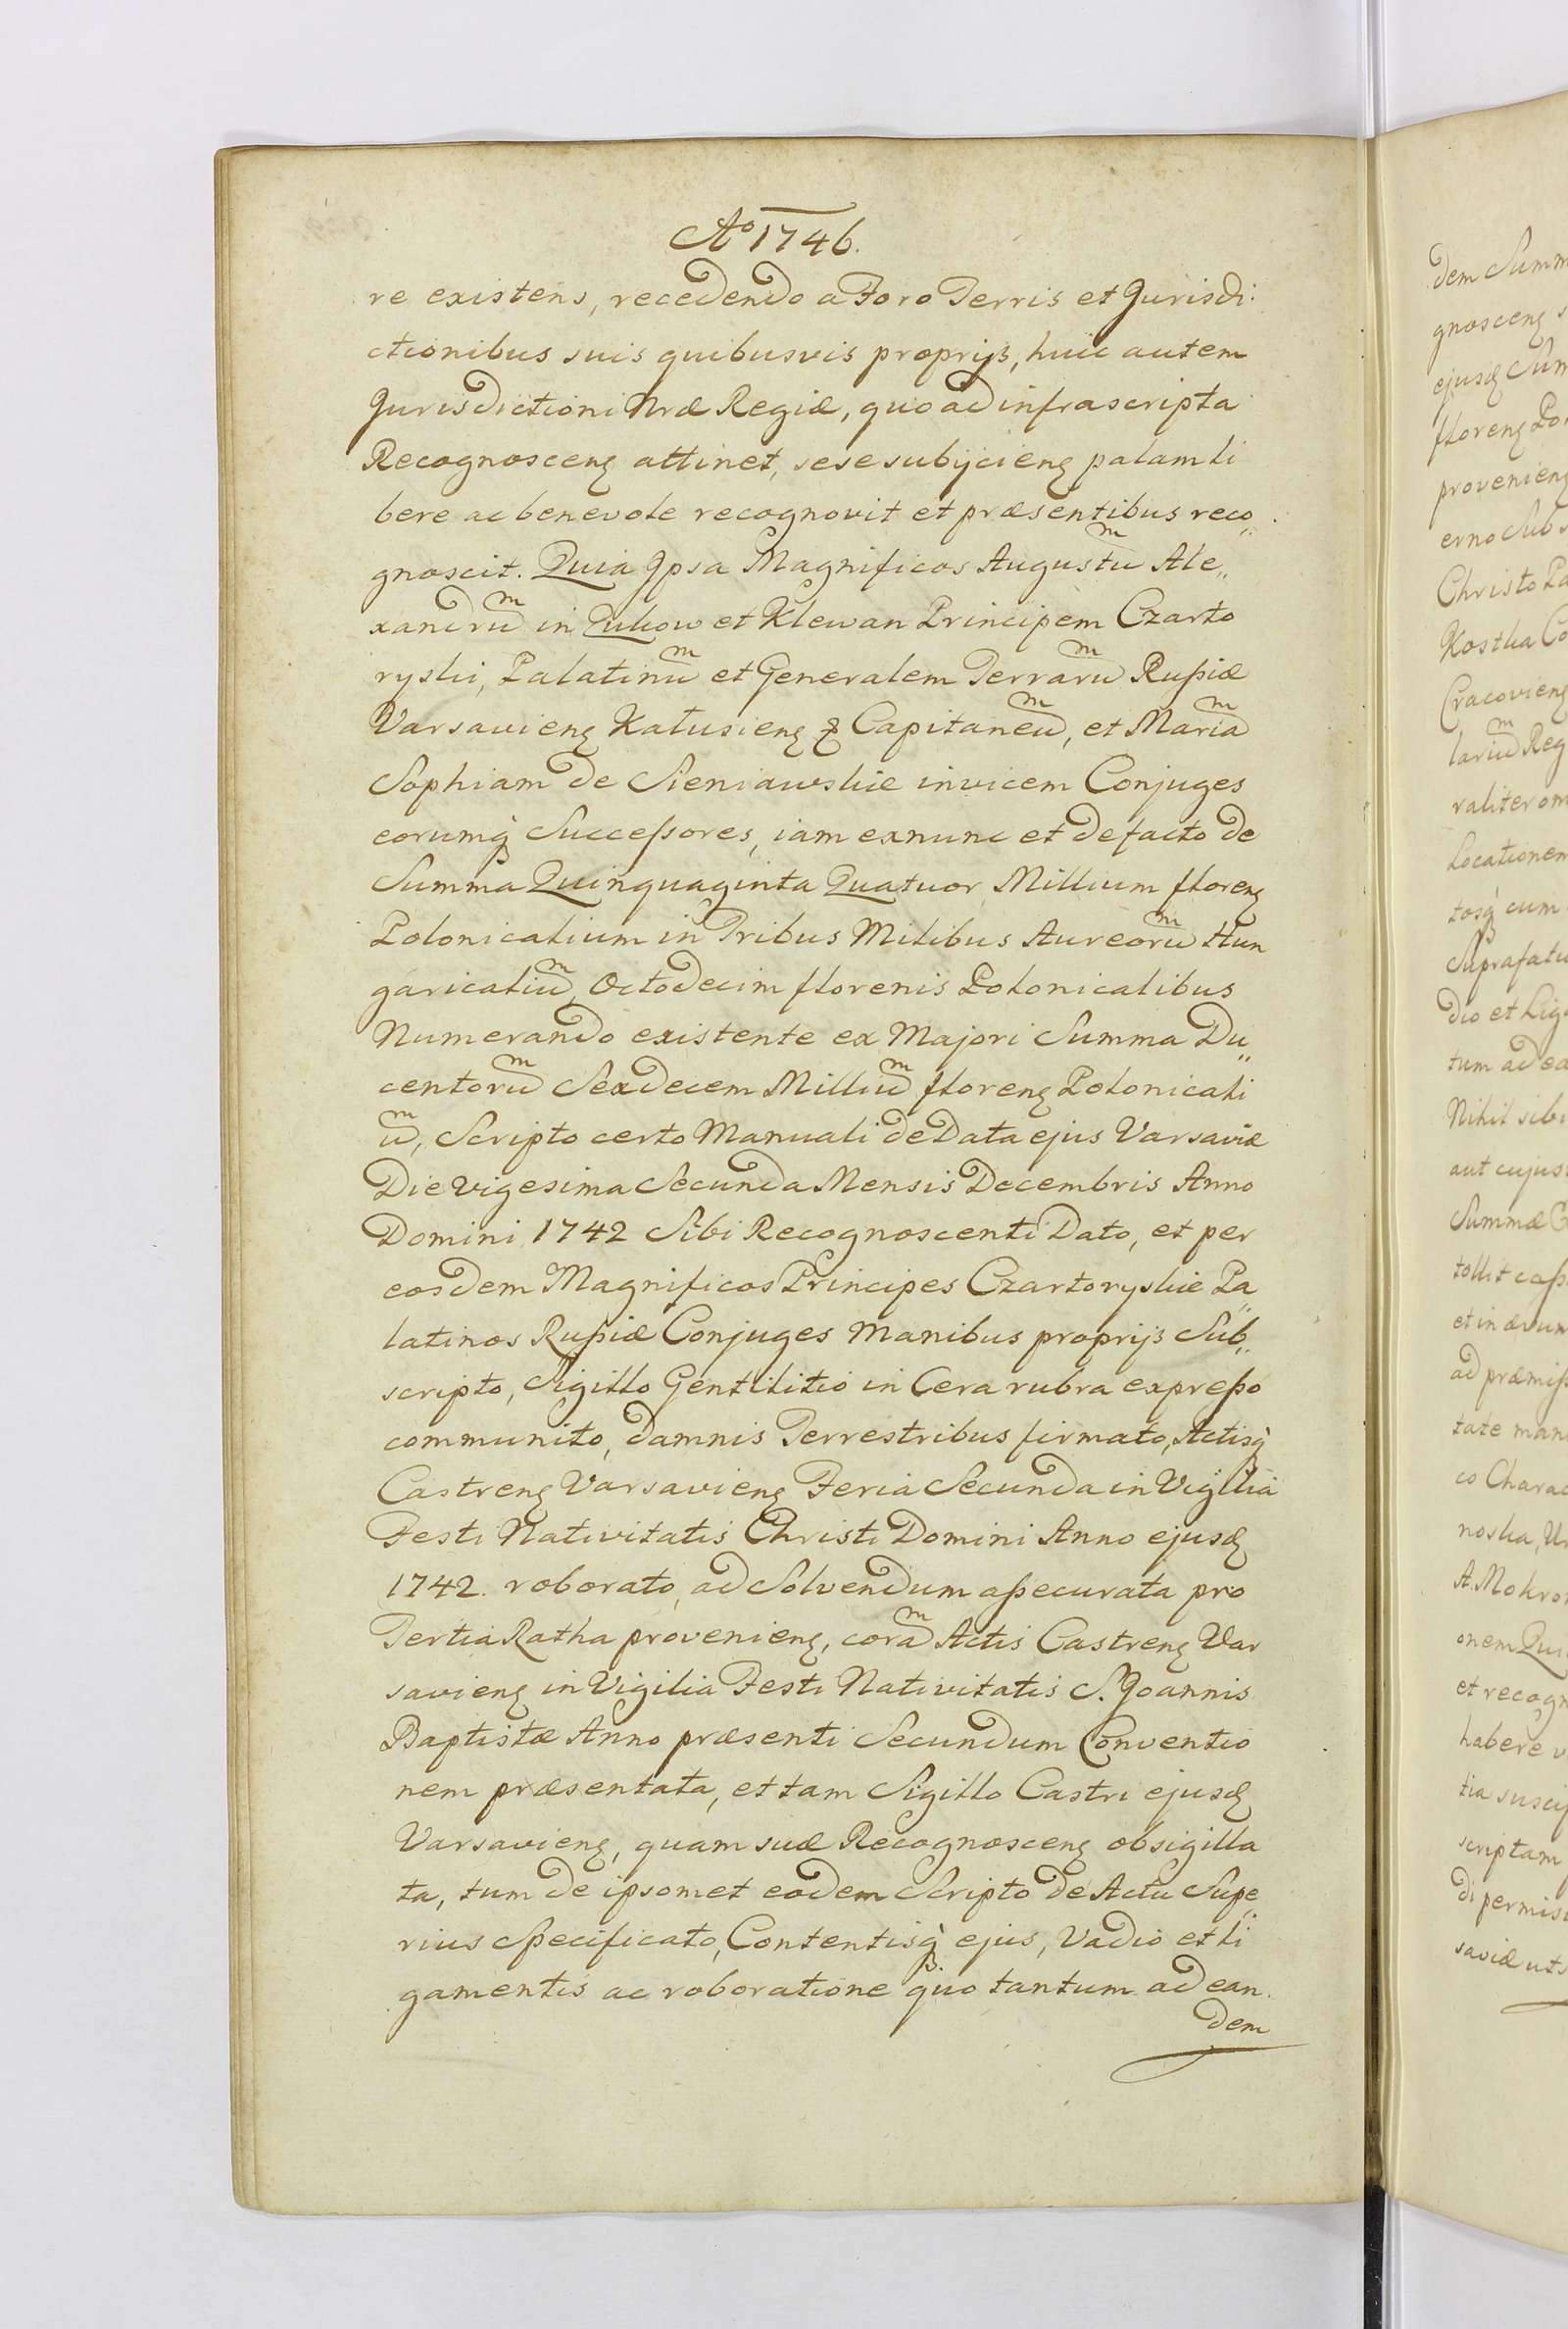 Aº 1746.
re existens, recedendo a Foro Terris et Jurisdi:
ctionibus suis quibusvis proprijs, huic autem
Jurisdictioni Nræ Regiæ, quo ad infrascripta
Recognosceną attinet, sese subijcieną palam li
bere ac benevole recognovit et præsentibus reco„
gnoscit. Quia Ipsa Magnificos Augustuᵐ Ale„
xandruᵐ in Zukow et Klewan Principem Czarto
ryski, Palatinuᵐ et Generalem Terraruᵐ Rußiæ
Varsavieną Kałusieną ꝫ Capitaneuᵐ, et Mariaᵐ
Sophiam de Sieniawskie invicem Conjuges
eorumq̀ Succeßores, iam exnunc et de facto de
Summa Quinquaginta Quatuor Millium floreną
Polonicalium in Tribus Milibus Aureoruᵐ Hun
garicaliuᵐ, Octodecim florenis Polonicalibus
Numerando existente ex Majori Summa Du„
centoruᵐ Sexdecem Milliuᵐ floreną Polonicali
uᵐ, Scripto certo Manuali de Data ejus Varsaviæ
Die Vigesima Secunda Mensis Decembris Anno
Domini 1742 Sibi Recognoscenti Dato, et per
eosdem Magnificos Principes Czartoryskie Pa„
latinos Rußiæ Conjuges Manibus proprijs Sub„
scripto, Sigillo Gentilitio in Cera rubra expreßo
communito, damnis Terrestribus firmato, Actisq̀
Castreną Varsavieną Feria Secunda in Vigilia
Festi Nativitatis Christi Domini Anno ejusdꝫ
1742. roborato, ad Solvendum aßecurata pro
Tertia Ratha provenieną, coraᵐ Actis Castreną Var
savieną in Vigilia Festi Nativitatis S. Joannis
Baptistæ Anno præsenti Secundum Conventio
nem præsentata, et tam Sigillo Castri ejusdꝫ
Varsavieną, quam suæ Recognosceną obsigilla
ta, tum de ipsomet eodem Scripto de Actu Supe„
rius Specificato, Contentisq̀ ejus, Vadio et li
gamentis ac roboratione quo tantum ad ean
dem
dem Summ
gnosceną
ejusdꝫ Sum
floreną Po
provenieną
erno Sub
Christo Pa
Kostka Co
Cracovieną
lariuᵐ Reg
raliter om
Locationem
tosq̀ cum
Suprafatu
dio et Liga
tum ad ea
Nihil sibi
aut cujus
Summæ
tollit caß
et in ævum
ad præmiß
tate man
co Charac
noska, Ur
A. Mokro
onem Qui
et recogn
habere v
tia suscip
scriptam
di permis
saviæ uts